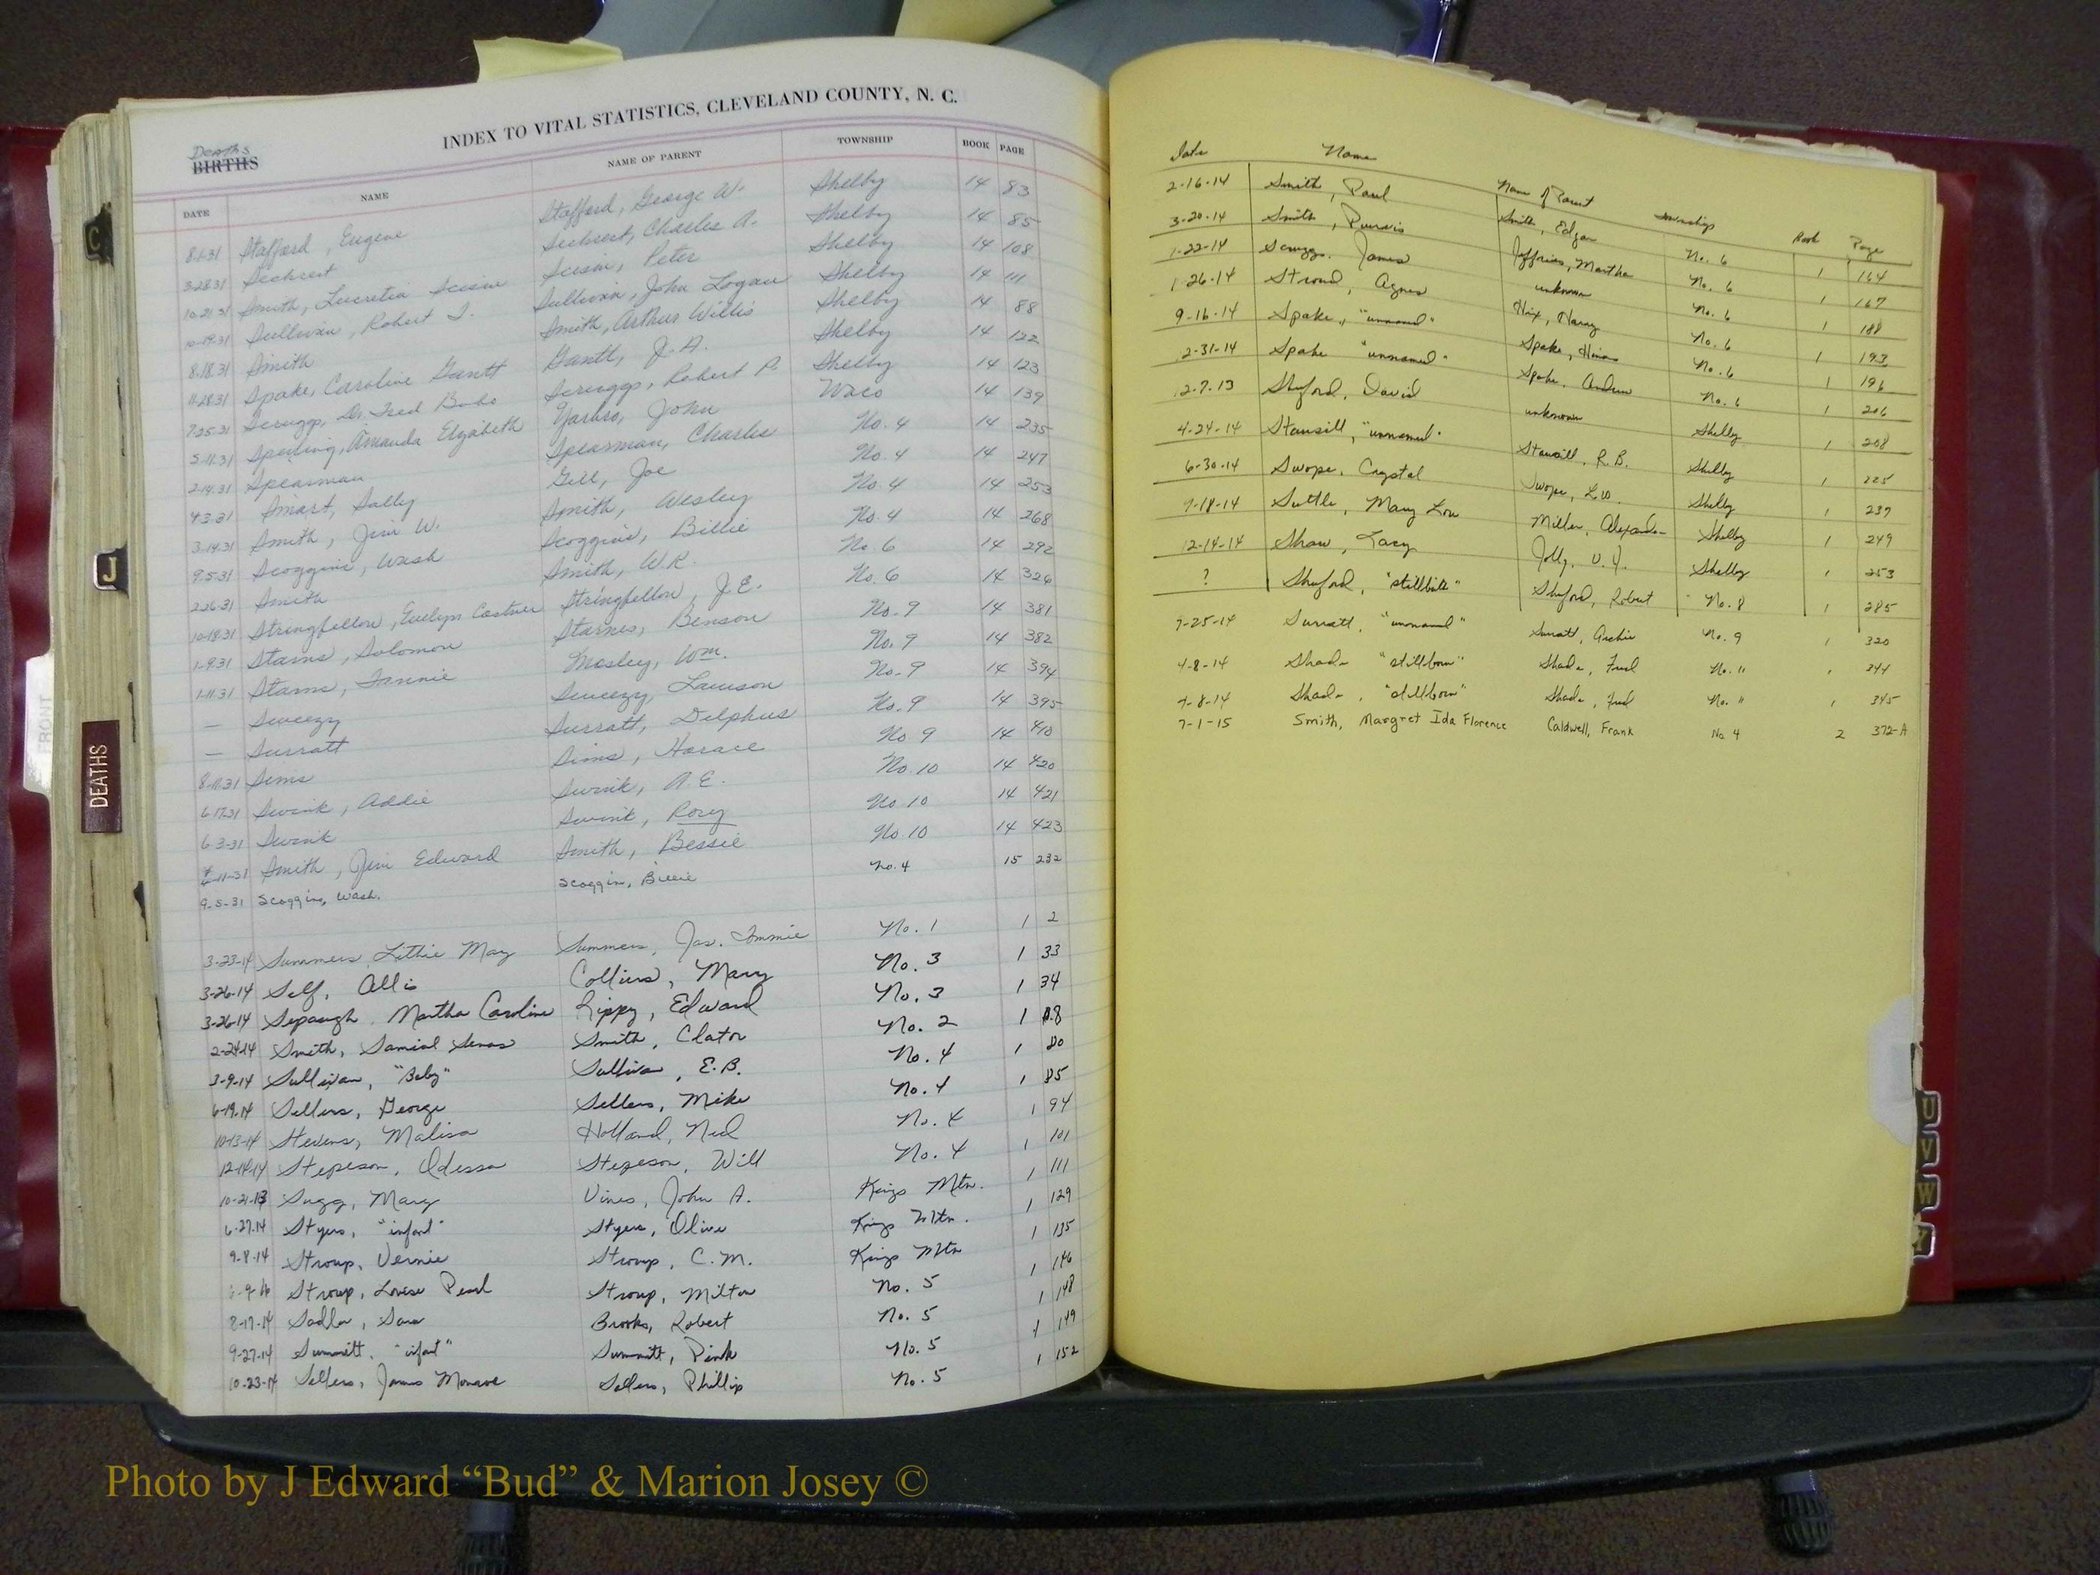 INDEX TO VITAL STATISTICS, CLEVELAND COUNTY, N. C.
Deaths
BIRTHS
DATE NAME NAME OF PARENT TOWNSHIP BOOK PAGE
8-1-31 Stafford, Eugene Stafford, George W. Shelby 14 83
3-28-31 Sechrest Sechrest, Charles A. Shelby 14 85
10-21-31 Smith, Lucretia Scism Scism, Peter Shelby 14 108
10-19-31 Sullivan, Robert Sullivan, John Logan Shelby 14 111
8-18-31 Smith Smith, Arthur Willis Shelby 14 88
11-28-31 Spake, Caroline Gantt Gantt, J. A. Shelby 14 122
7-25-31 Scruggs, Dr. Fred Scruggs, Robert P. Shelby 14 123
5-11-31 Sperling, Amanda Elizabeth Yarbro, John Waco 14 139
2-14-31 Spearman Spearman, Charlie No. 4 14 235
4-3-31 Smart, Sally Gill, Joe No. 4 14 247
3-14-31 Smith, Jim W. Smith, Wesley No. 4 14 253
9-5-31 Scoggins, Wash Scoggins, Billie No. 4 14 268
2-26-31 Smith Smith, W.R. No. 6 14 292
10-18-31 Stringfellow, Evelyn Costner Stringfellow, J.E. No. 6 14 326
1-9-31 Starns, Solomon Starnes, Benson No. 9 14 381
1-11-31 Starns, Fannie Mosley, Wm. No. 9 14 382
— Sweezy Sweezy, Lawson No. 9 14 394
— Surratt Surratt, Delphus No. 9 14 395
8-11-31 Sims Sims, Horace No 9 14 410
6-17-31 Swink, Addie Swink, A.E. No. 10 14 420
6-3-31 Swink Swink, Rosy No. 10 14 421
11-31 Smith, Jim Edward Smith, Bessie No. 10 14 423
9-5-31 Scoggins, Wash. Scoggin, Billie No. 4 15 232
3-23-14 Summers, Lithie May Summers, Jas. Tommie No. 1 1 2
3-26-14 Self, Allis Collins, Mary No. 3 1 33
3-26-14 Sepaugh, Martha Caroline Rippy, Edward No. 3 1 34
2-24-14 Smith, Samial Smith, Clator No. 2 1
3-9-14 Sullivan, "Baby" Sullivan, E.B. No. 4 1 80
6-19-14 Sellers, George Sellers, Mike No. 4 1 85
10-13-14 Stevens, Malisa Holland, Ned No. 4 1 94
12-14-14 Stepeson, Odessa Stepeson, Will No. 4 1 101
10-21-13 Sugg, Mary Vines, John A. Kings Mtn. 1 111
6-27-14 Styers, "infant" Styers, Olive Kings Mtn. 1 129
9-8-14 Stroup, Vernie Stroup, C.M. Kings Mtn 1 135
Stroup, Lovise Pearl Stroup, Milton No. 5 1 146
8-17-14 Sadler, Sara Brooks, Robert No. 5 1 148
9-27-14 Summitt, "infant" Summitt, Pink No. 5 1 149
10-23-14 Sellers, James Monroe Sellers, Phillip No. 5 1 152
Date Name Name of Parent Township Book Page
2-16-14 Smith, Paul Smith, Edgar No. 6 1 164
3-20-14 Smith, Purvis Jeffries, Martha No. 6 1 167
1-22-14 Scruggs, James unknown No. 6 1 188
1-26-14 Stroud, Agnes Hix, Harvy No. 6 1 193
9-16-14 Spake, "unnamed" Spake, No. 6 1 196
2-31-14 Spake "unnamed" Spake, Andrew No. 6 1 206
2-7-13 Shuford, David unknown Shelby 1 208
4-24-14 Stansill, "unnamed" Stansill, R.B. Shelby 1 225
6-30-14 Swope, Crystal Swope, L.W. Shelby 1 237
9-18-14 Suttle, Mary Lou Miller, Shelby 1 249
12-14-14 Shaw, Lacy Jolly, Shelby 1 253
? Shuford, "stillbirth" Shuford, Robert No. 8 1 285
7-25-14 Surratt, "unnamed" Surratt, Archie No. 9 1 320
4-8-14 Shade "stillborn" Shade, Fred No. 11 1 344
4-8-14 Shade, "stillborn" Shade, Fred No. 11 1 345
7-1-15 Smith, Margret Ida Florence Caldwell, Frank No 4 2 372-A
C
J
DEATHS
U
V
W
Y
Photo by J Edward “Bud” & Marion Josey ©